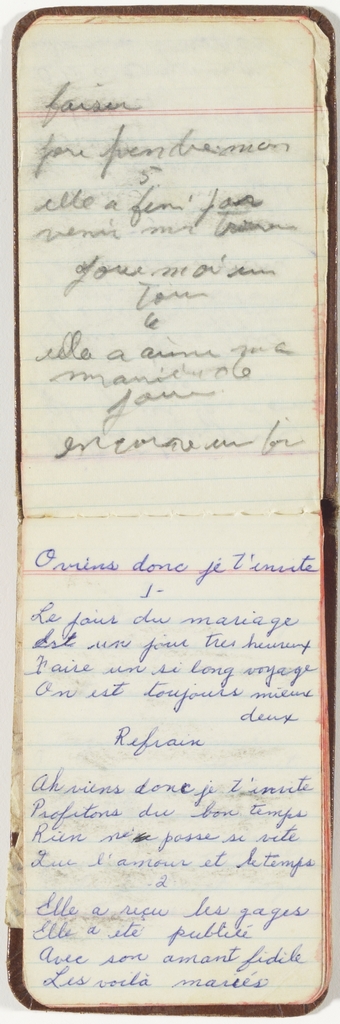 faiseu
fore pendre mon
5
elle a fini par
venir me
joue moi un
tour
6
elle a aimé ma
manière de
jouer
encore un

O viens donc je t'invite
1-
Le jour du mariage
Est un jour tres heureux
Faire un si long voyage
On est toujours mieux
deux
Refrain
Ah viens donc je t'invite
Profitons du bon temps
Rien ne passe si vite
Que l'amour et le temps
2
Elle a reçu les gages
Elle a été publiée
Avec son amant fidile
Les voilà mariés